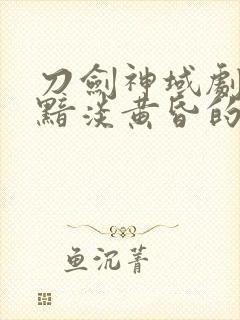 刀劍神域劇
黯淡黃昏的
鱼沉菁